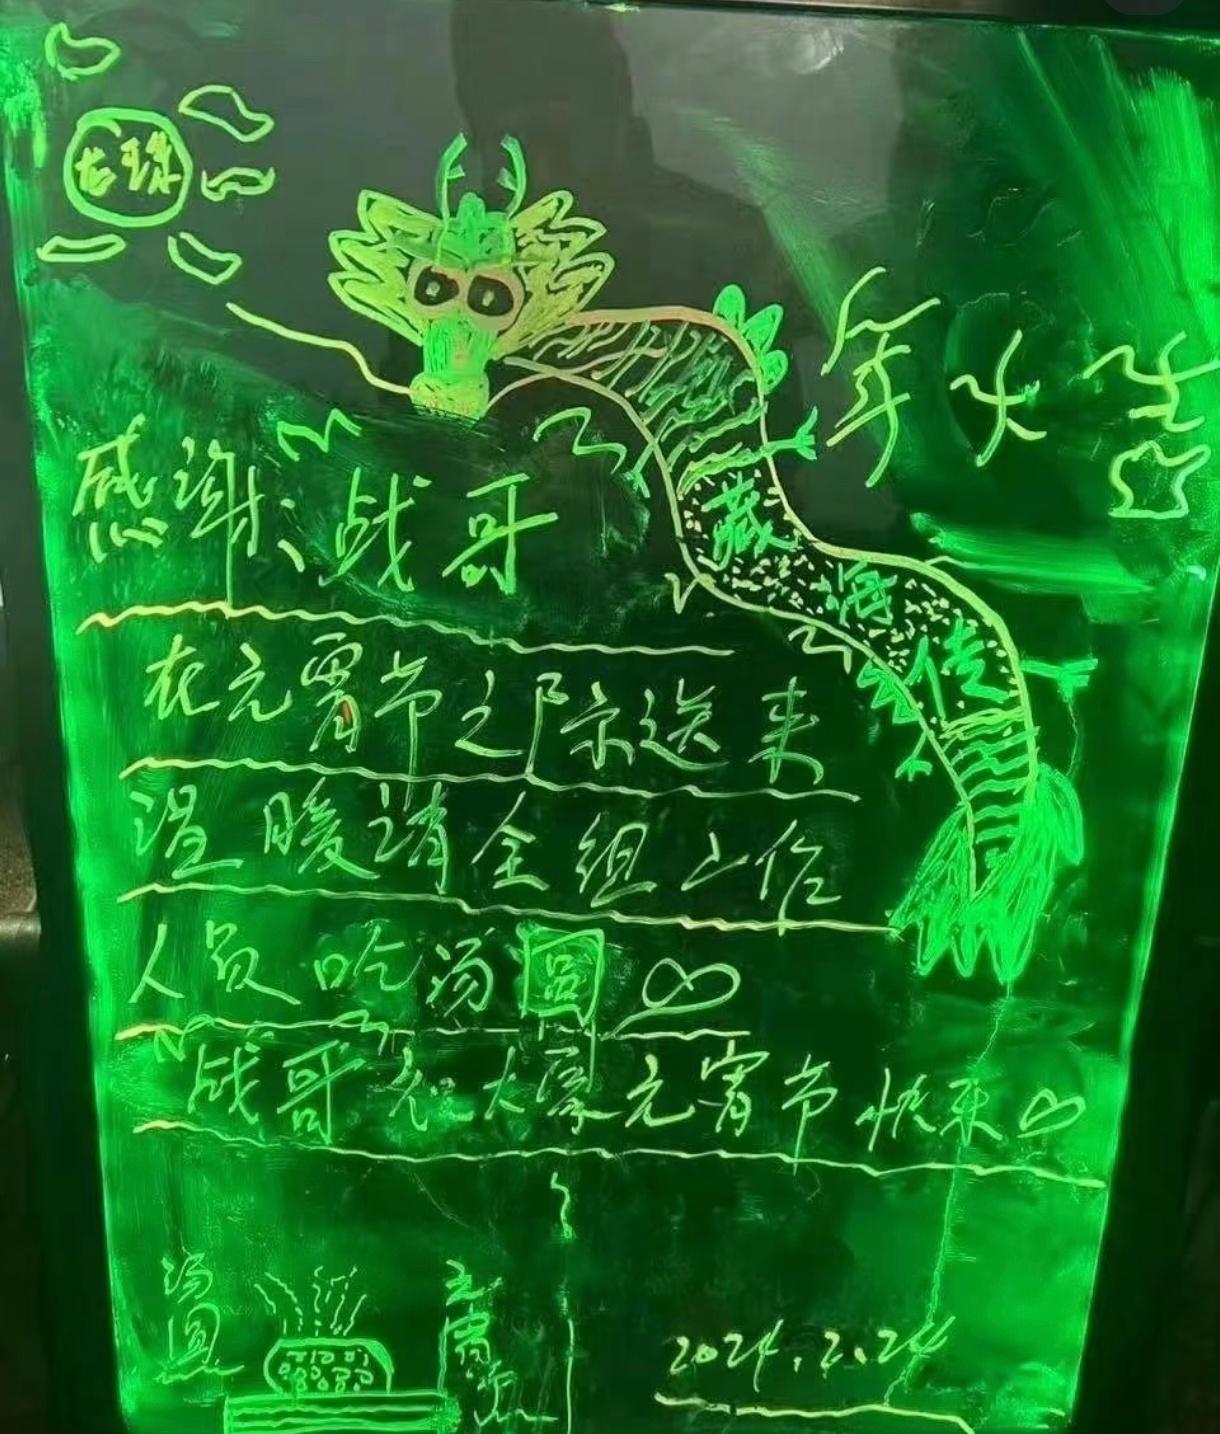 龙珠
年火
感谢：战哥
藏海传
在元宵节之际送来
温暖请全组工作
人员吃汤圆
战哥祝大家元宵节快乐
汤圆
元宵
2024.2.24